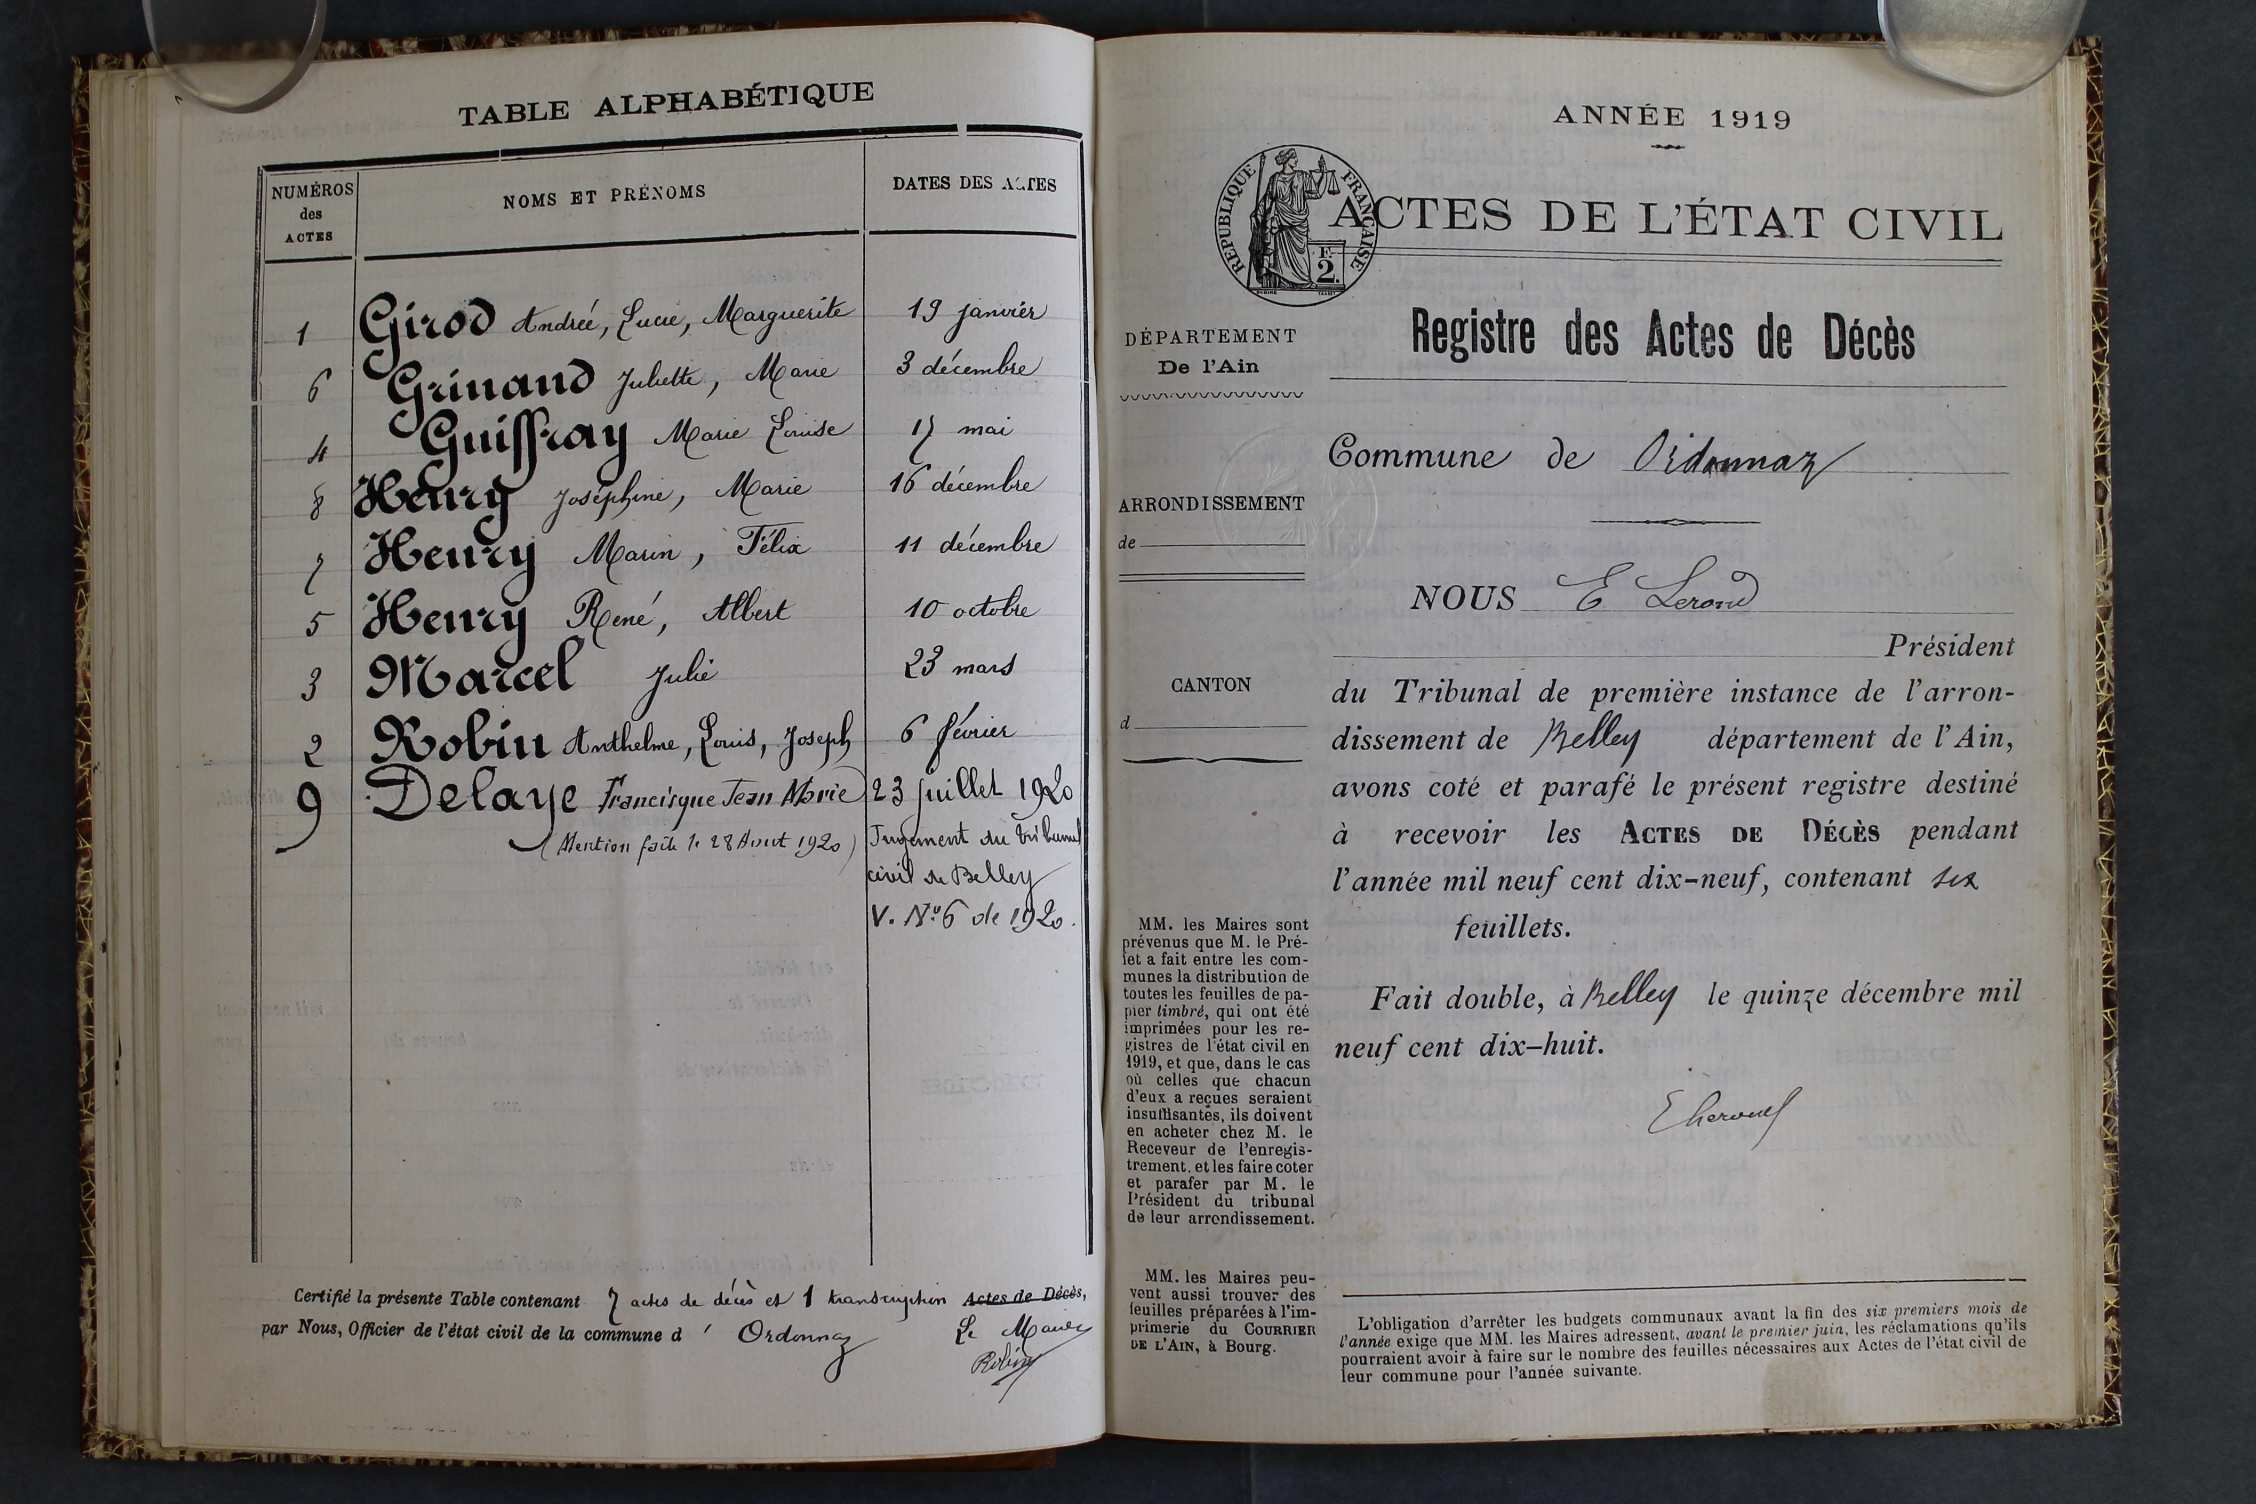 TABLE ALPHABÉTIQUE
NUMÉROS
des
ACTES
NOMS ET PRÉNOMS
DATES DES ACTES
1 Girod Andrée, Lucie, Marguerite 19 janvier
6 Grinand Juliette, Marie 3 décembre
4 Guiffray Marie Louise 17 mai
8 Henry Joséphine, Marie 16 décembre
7 Henry Marin, Félix 11 décembre
5 Henry René, Albert 10 octobre
3 Marcel Julie 23 mars
2 Robin Anthelme, Louis, Joseph 6 février
9 Delaye Francisque Jean Marie 23 juillet 1920
(Mention faite le 28 Aout 1920) Jugement du tribunal
civil de Belley
V. N° 6 de 1920.
Certifié la présente Table contenant 7 actes de décès et 1 transcription Actes de Décès,
par Nous, Officier de l'état civil de la commune d' Ordonnaz Le Maire
Robin
ANNÉE 1919
RÉPUBLIQUE FRANÇAISE
2
ACTES DE L'ÉTAT CIVIL
Registre des Actes de Décès
DÉPARTEMENT
De l'Ain
Commune de Ordonnaz
ARRONDISSEMENT
de
NOUS E
Président
CANTON
d
du Tribunal de première instance de l'arron-
dissement de Belley département de l'Ain,
avons coté et parafé le présent registre destiné
à recevoir les ACTES DE DÉCÈS pendant
l'année mil neuf cent dix-neuf, contenant six
feuillets.
Fait double, à Belley le quinze décembre mil
neuf cent dix-huit.
MM. les Maires sont
prévenus que M. le Pré-
fet a fait entre les com-
munes la distribution de
toutes les feuilles de pa-
pier timbré, qui ont été
imprimées pour les re-
gistres de l'état civil en
1919, et que, dans le cas
où celles que chacun
d'eux a reçues seraient
insuffisantes, ils doivent
en acheter chez M. le
Receveur de l'enregis-
trement, et les faire coter
et parafer par M. le
Président du tribunal
de leur arrondissement.
MM. les Maires peu-
vent aussi trouver des
feuilles préparées à l'im-
primerie du COURRIER
DE L'AIN, à Bourg.
L'obligation d'arrêter les budgets communaux avant la fin des six premiers mois de
l'année exige que MM. les Maires adressent, avant le premier juin, les réclamations qu'ils
pourraient avoir à faire sur le nombre des feuilles nécessaires aux Actes de l'état civil de
leur commune pour l'année suivante.